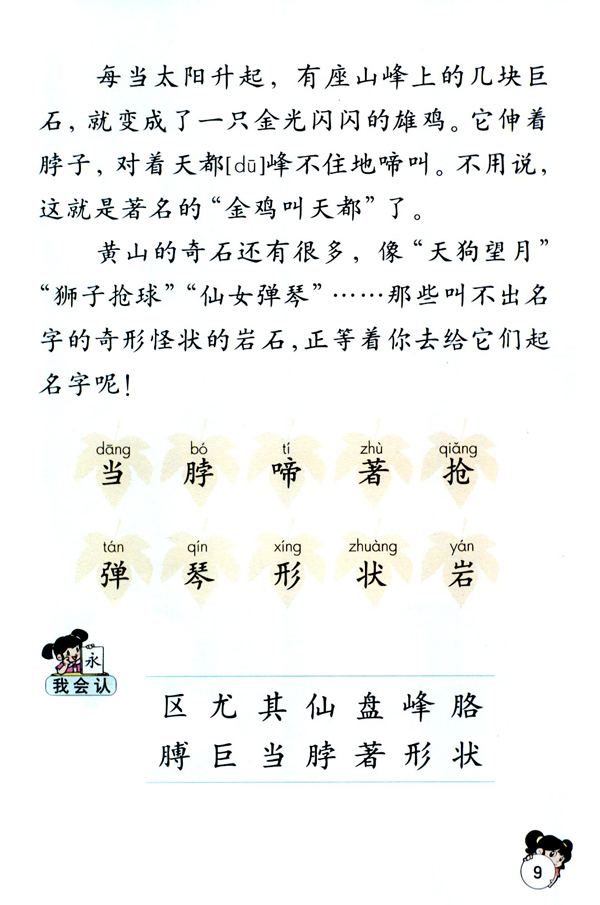 每当太阳升起，有座山峰上的几块巨
石，就变成了一只金光闪闪的雄鸡。它伸着
脖子，对着天都[dū]峰不住地啼叫。不用说，
这就是著名的“金鸡叫天都”了。
黄山的奇石还有很多，像“天狗望月”
“狮子抢球”“仙女弹琴”……那些叫不出名
字的奇形怪状的岩石，正等着你去给它们起
名字呢！
dāng bó tí zhù qiǎng
当 脖 啼 著 抢
tán qín xíng zhuàng yán
弹 琴 形 状 岩
永
我会认
区 尤 其 仙 盘 峰 胳
膊 巨 当 脖 著 形 状
9